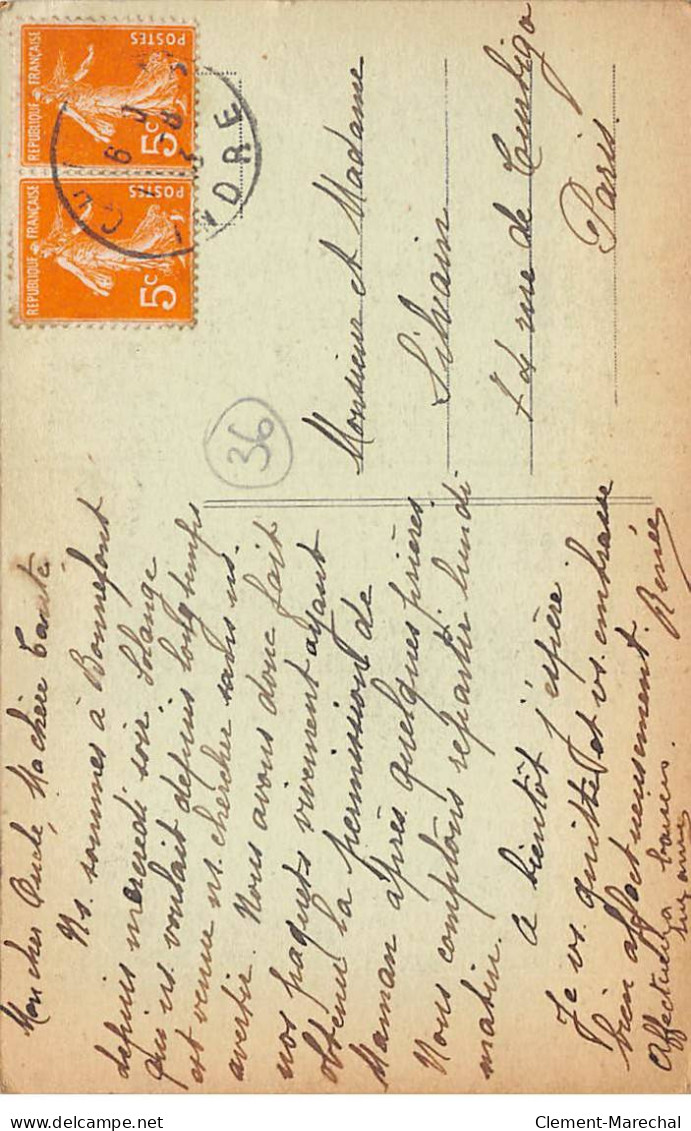 Mon cher Oncle, Ma chère Tante
Ns. sommes à Bonnefont
depuis mercredi soir. Solange
qui ns. voulait depuis longtemps
est venue ns. chercher sans ns.
avertir. Nous avons donc fait
nos paquets vivement ayant
obtenu la permission de
Maman après quelques prières.
Nous comptons repartir lundi
matin.
à bientôt j'espère.
Je vs. quitte et vs. embrasse
bien affectueusement. Renée
Affectueux baisers.
Suzanne
Monsieur et Madame
Silvain
rue de Turbigo
Paris.
36
REPUBLIQUE FRANÇAISE
POSTES
5c
REPUBLIQUE FRANÇAISE
5c
INDRE
Clement-Marechal